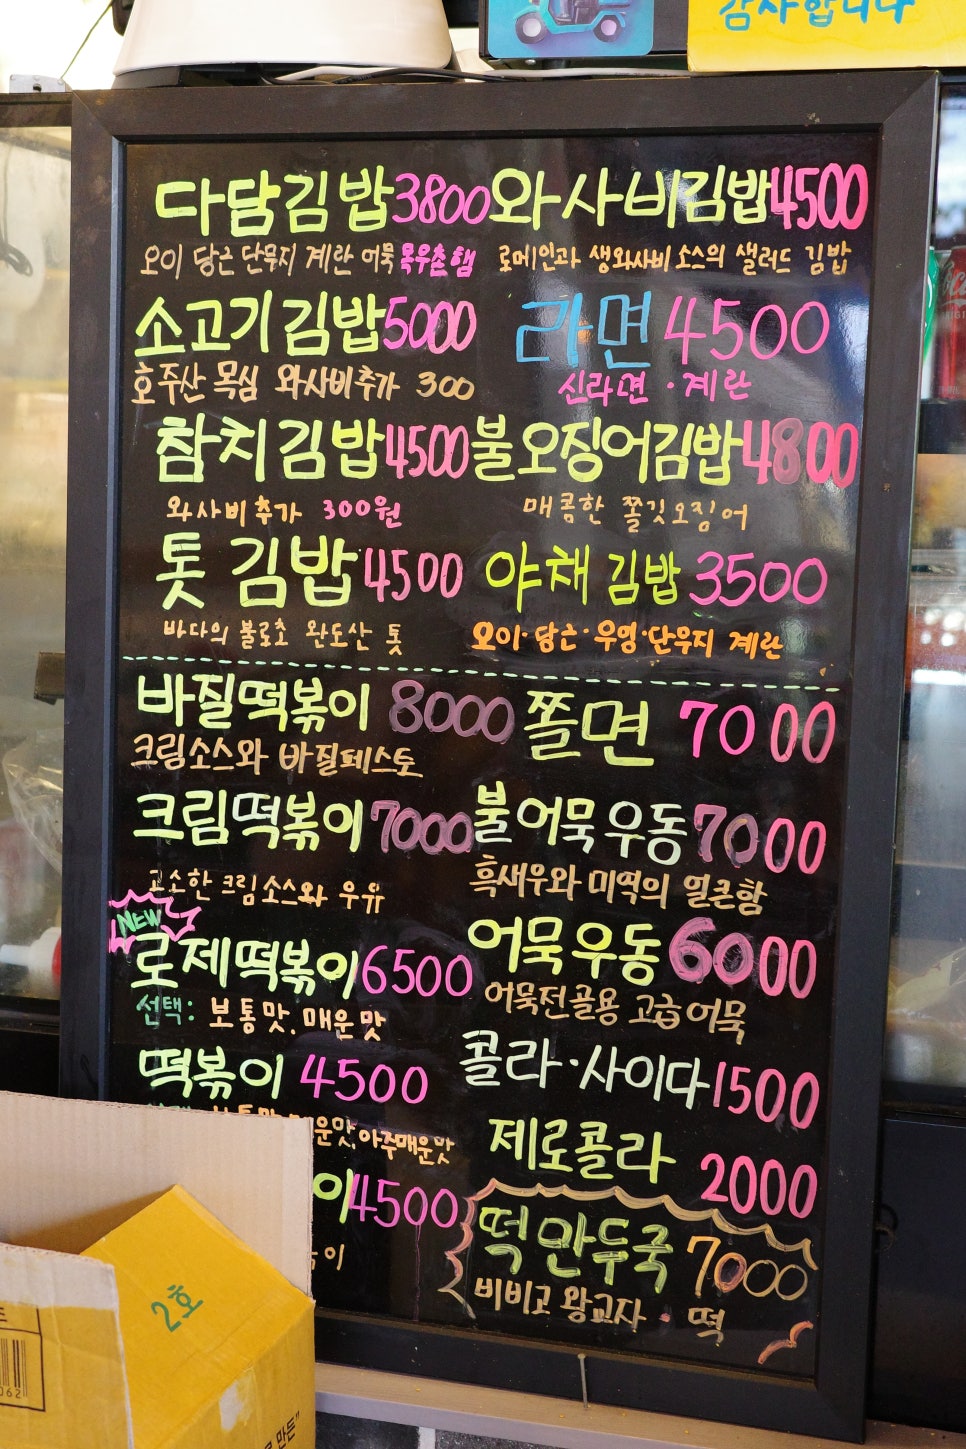 감사합니다
다담김밥 3800
오이 당근 단무지 계란 어묵 목우촌햄
소고기김밥 5000
호주산 목심 와사비추가 300
참치김밥 4500
와사비추가 300원
톳 김밥 4500
바다의 불로초 완도산 톳
와사비김밥 4500
로메인과 생와사비소스의 샐러드 김밥
라면 4500
신라면·계란
불오징어김밥 4800
매콤한 쫄깃오징어
야채김밥 3500
오이·당근·우엉·단무지 계란
바질떡볶이 8000
크림소스와 바질페스토
크림떡볶이 7000
고소한 크림소스와 우유
NEW
로제떡볶이 6500
선택: 보통맛, 매운맛
떡볶이 4500
보통맛, 매운맛, 아주매운맛
이 4500
이
쫄면 7000
불어묵우동 7000
흑새우와 미역의 얼큰함
어묵우동 6000
어묵전골용 고급어묵
콜라·사이다 1500
제로콜라 2000
떡만두국 7000
비비고 왕교자·떡
2호